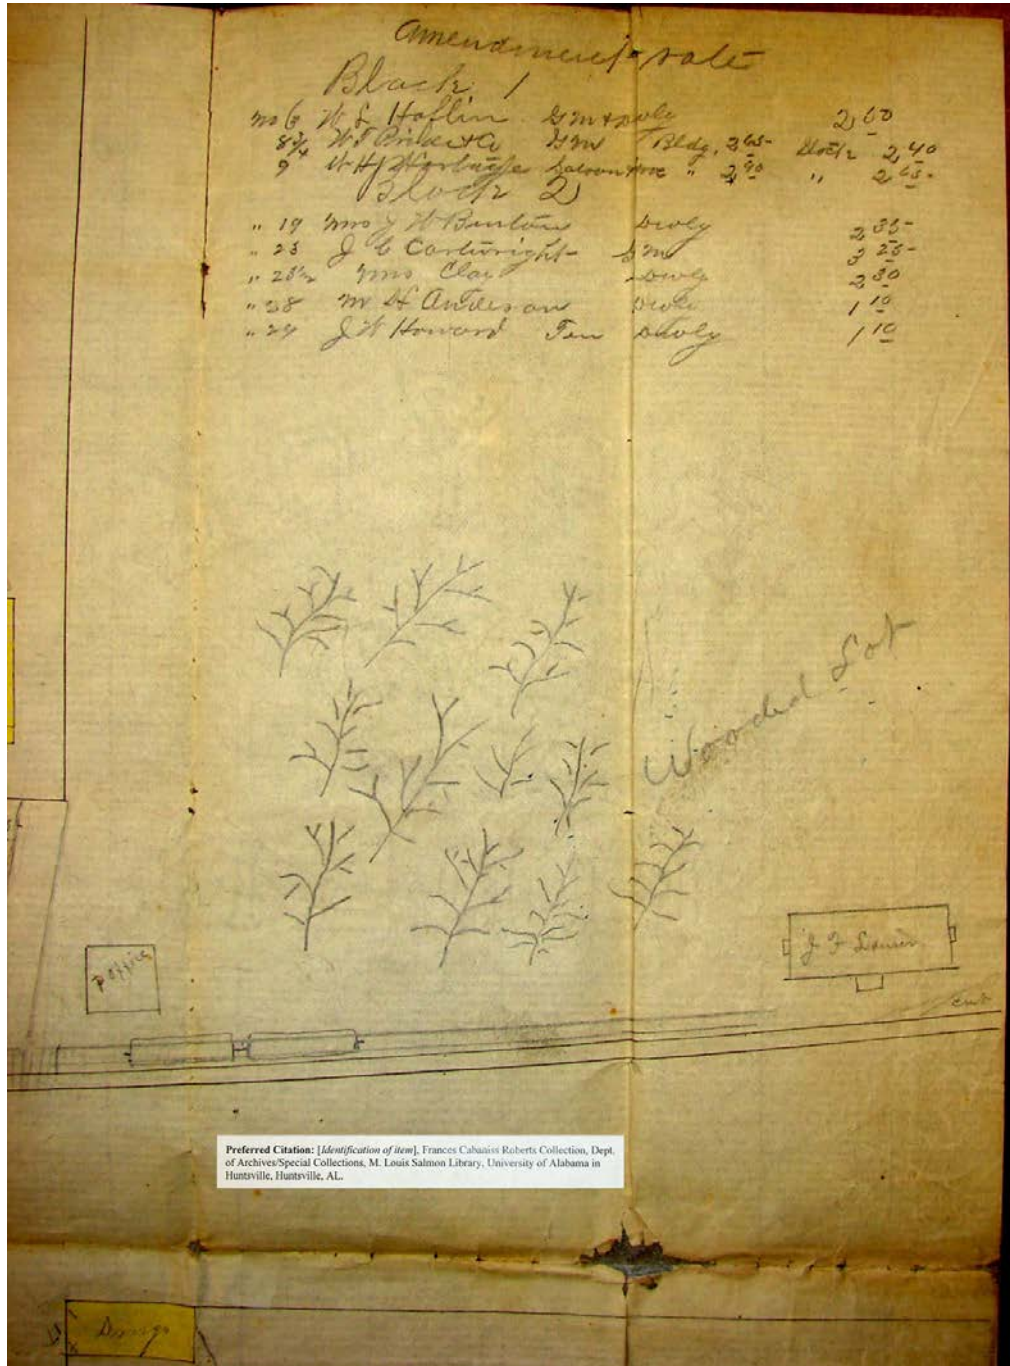 Amendment rate
Block 1
no 6 W L Haflin G M & Dwly 2 60
8 3/4 W F & Co G M Bldg. 2 65 Stock 2 40
9 W H Saloon " 2 90 " 2 65
Block 2
" 19 Mrs J W Burton Dwly 2 35
" 23 J C Cartwright G M 3 25
Mrs Clay Dwly 2 30
" 28 M H Anderson Dwly 1 10
" 29 J W Howard Ten Dwly 1 10
Wooded Lot
J F
P Office
cut
Preferred Citation: [Identification of item], Frances Cabaniss Roberts Collection, Dept.
of Archives/Special Collections, M. Louis Salmon Library, University of Alabama in
Huntsville, Huntsville, AL.